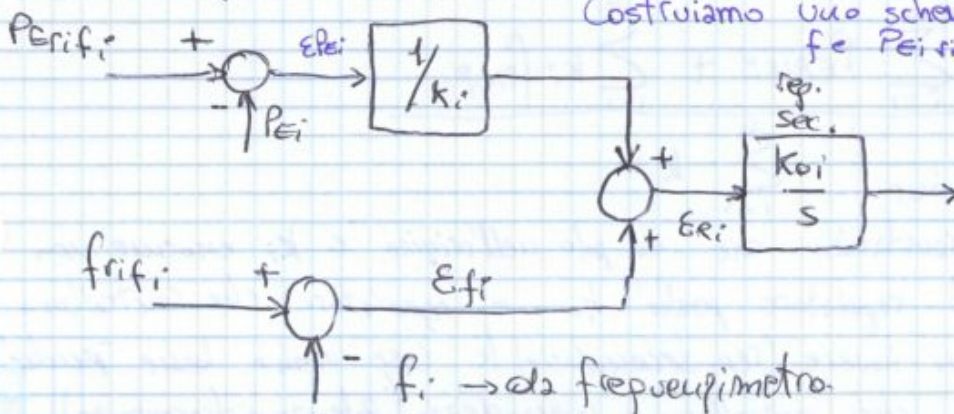 Costruiamo uno sche
fe PEi ri
PErifi + εPEi 1/Ki
- PEi
rep.
sec.
+ εRi K0i/s
+
frifi + εfi
- fi → da frequenzimetro.